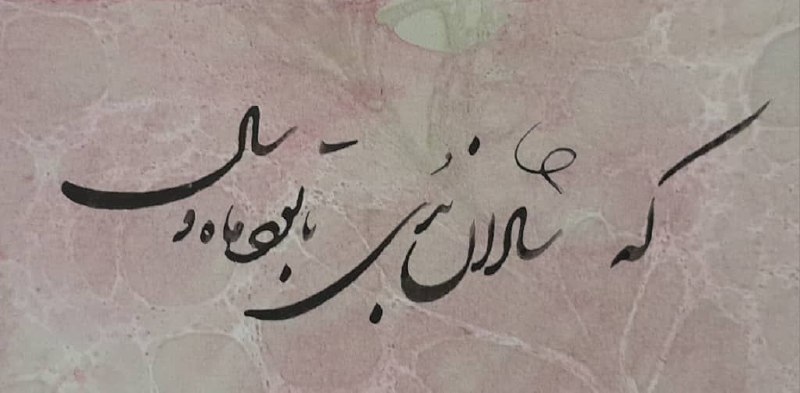 که شادان بزی تا بود ماه و سال